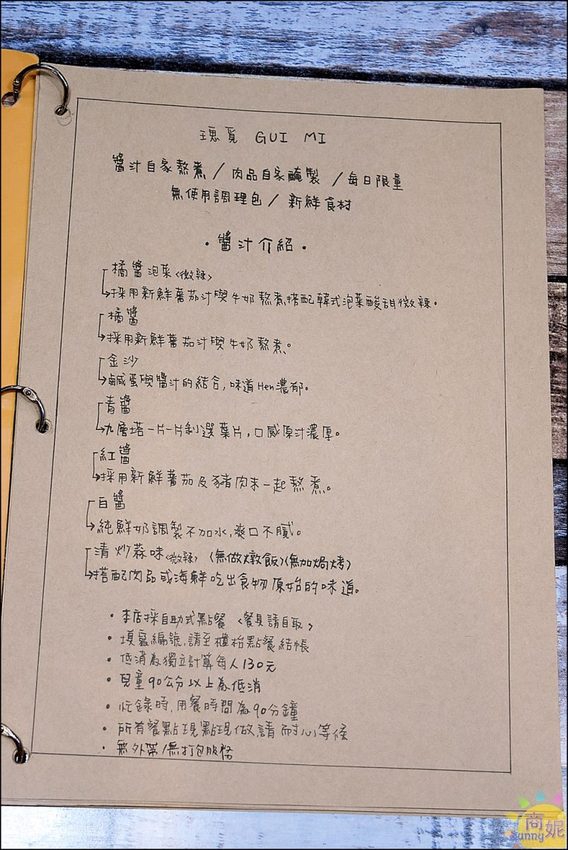 瑰覓 GUI MI
醬汁自家熬煮/肉品自家醃製/每日限量
無使用調理包/新鮮食材
·醬汁介紹·
橘醬泡菜<微辣>
採用新鮮蕃茄汁與牛奶熬煮搭配韓式泡菜酸甜微辣。
橘醬
採用新鮮蕃茄汁與牛奶熬煮。
金沙
鹹蛋與醬汁的結合,味道Hen濃郁。
青醬
九層塔一片一片剝選葉片,口感原汁濃厚。
紅醬
採用新鮮蕃茄及豬肉末一起熬煮。
白醬
純鮮奶調製不加水,爽口不膩。
清炒蒜味<微辣> (無做燉飯)(無加焗烤)
搭配肉品或海鮮吃出食物原始的味道。
·本店採自助式點餐 <餐具請自取>
·填寫編號,請至櫃枱點餐結帳
·低消為獨立計算每人130元
·兒童90公分以上為低消
·忙錄時,用餐時間為90分鐘
·所有餐點現點現做請耐心等候
·無外帶/無打包服務
商妮
Sunny